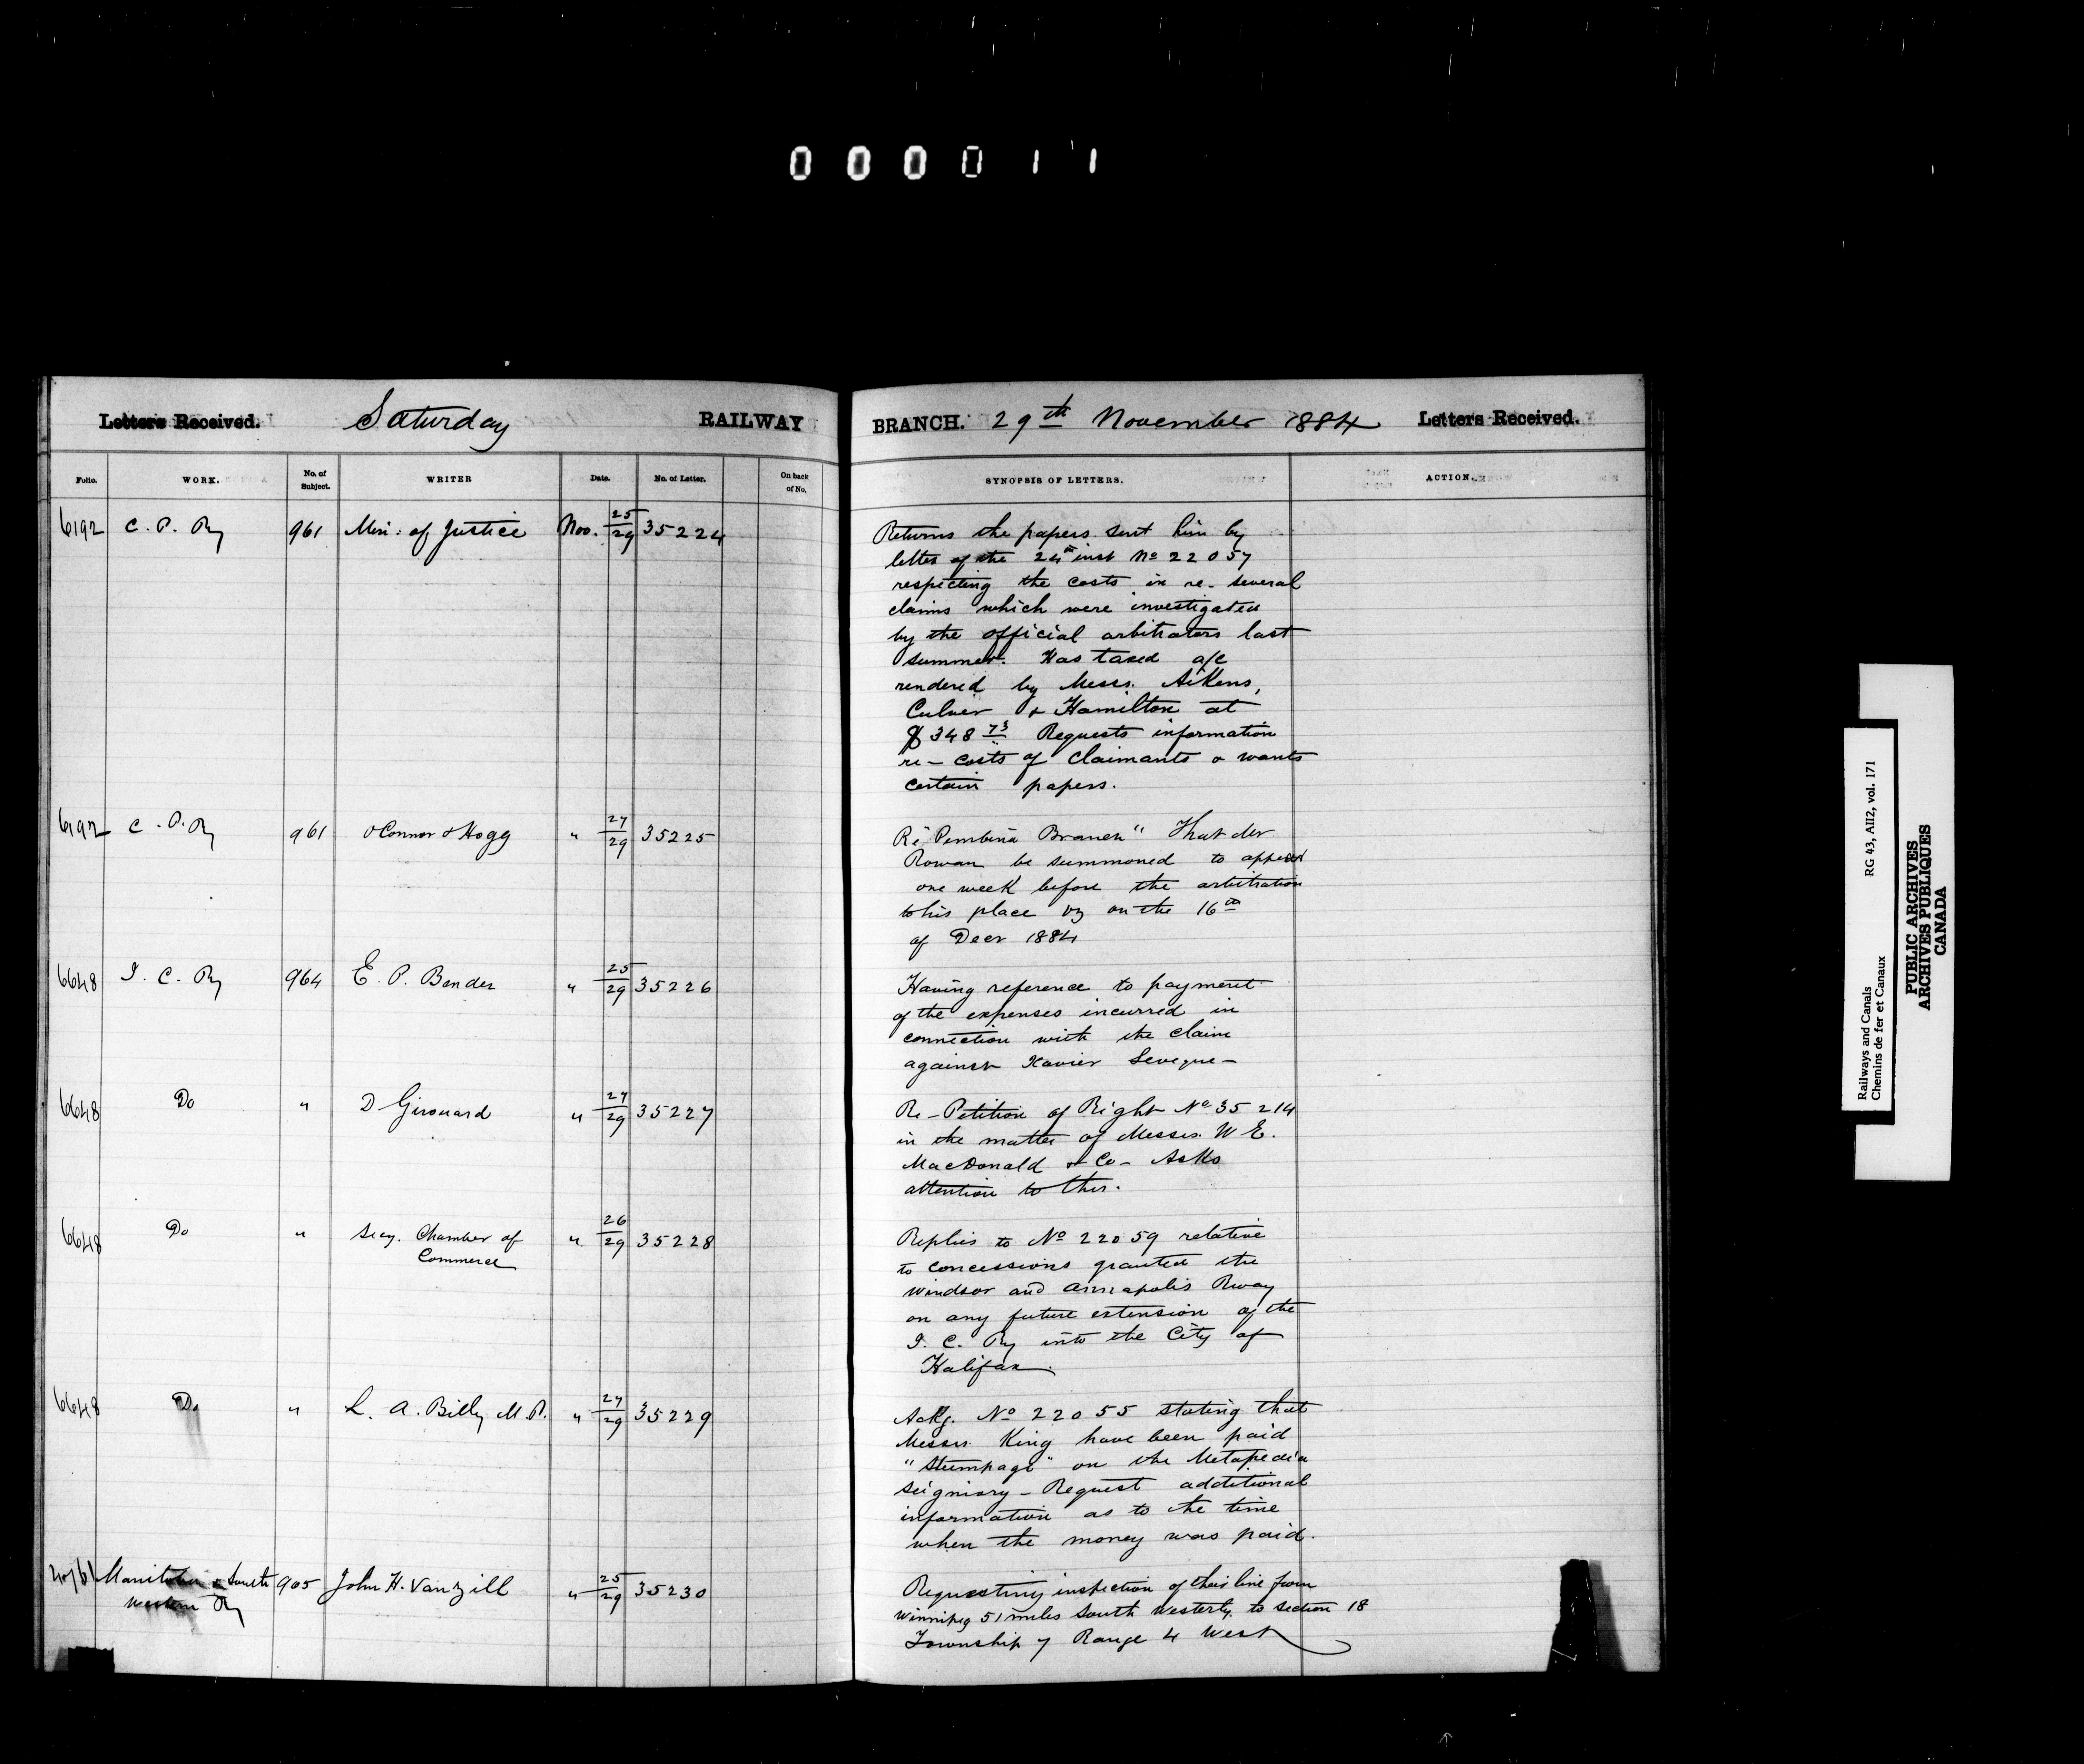 000011
Letters Received. Saturday RAILWAY BRANCH. 29th November 1884 Letters Received.
Folio. WORK. No. of Subject. WRITER Date. No. of Letter. On back of No. SYNOPSIS OF LETTERS. ACTION.
6192 C. P. Ry 961 Min: of Justice Nov. 25/29 35224
Returns the papers sent him by
letter of the 24th inst No 22057
respecting the costs in re- several
claims which were investigated
by the official arbitrators last
summer. Has taxed a/c
rendered by Messrs. Aikens,
Culver & Hamilton at
$348 73 Requests information
re- costs of claimants & wants
certain papers.
6192 C. P. Ry 961 O'Connor & Hogg " 27/29 35225
Re "Pembina Branch" That
Rowan be summoned to appear
one week before the arbitration
place on the 16th
of Decr 1884
6648 I. C. Ry 964 E. P. Bender " 25/29 35226
Having reference to payment
of the expenses incurred in
connection with the claim
against Xavier Leveque-
6648 Do " D Girouard " 27/29 35227
Re- Petition of Right No 35214
in the matter of Messrs. W E.
MacDonald & Co- Asks
attention to this.
6648 Do " Secy. Chamber of " 26/29 35228
Commerce
Replies to No 22059 relative
to concessions granted the
Windsor and Annapolis Rway
on any future extension of the
I. C. Ry into the City of
Halifax.
6648 Do " L. A. Billy M.P. " 27/29 35229
Ackg. No 22055 stating that
Messrs. King have been paid
"Stumpage" on the Metapedia
Seigniory - Request additional
information as to the time
when the money was paid.
Manitoba & South 905 John H. Vanzill " 25/29 35230
Western Ry
Requesting inspection of their line from
Winnipeg 51 miles South Westerly to section 18
Township 7 Range 4 West
Railways and Canals RG 43, AII2, vol. 171
Chemins de fer et Canaux
PUBLIC ARCHIVES
ARCHIVES PUBLIQUES
CANADA